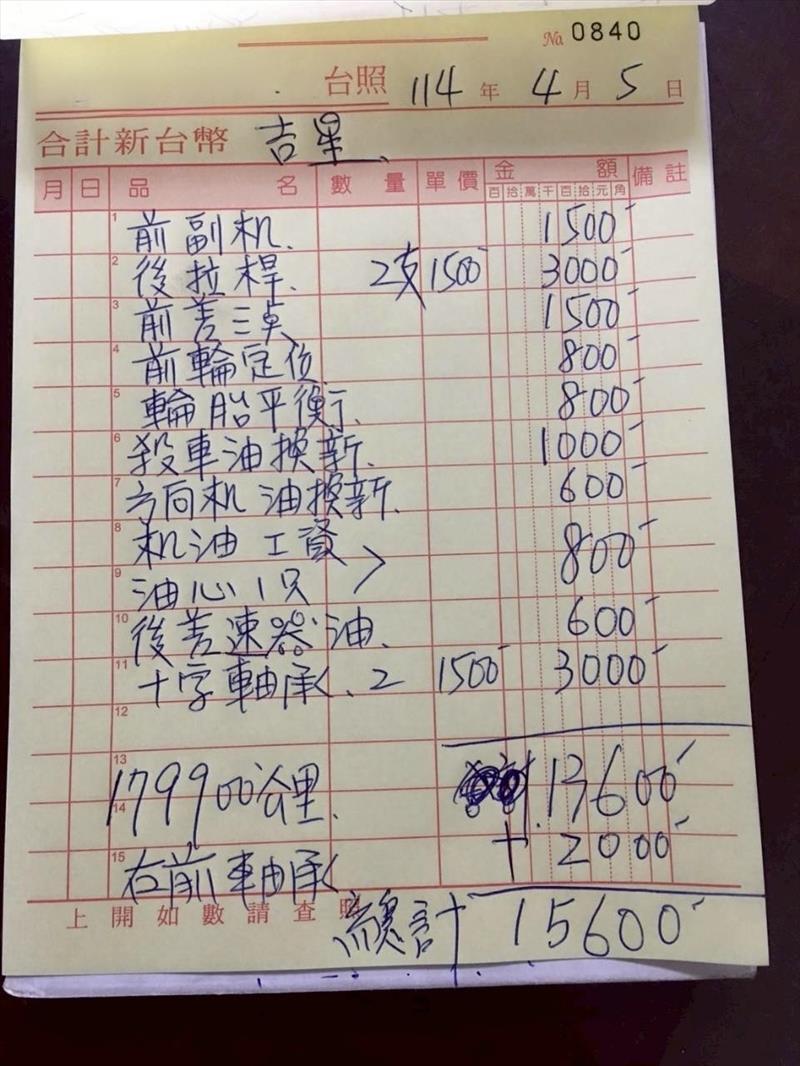 № 0840
台照 114 年 4 月 5 日
合計新台幣 吉星
月 日 品名 數量 單價 金額 備註
百 拾 萬 千 百 拾 元 角
1 前副机、 1500
2 後拉桿、 2支 1500 3000
3 前差三点 1500
4 前輪定位 800
5 輪胎平衡、 800
6 殺車油換新、 1000
7 方向机油換新、 600
8 机油工資
9 油心1只 > 800
10 後差速器油、 600
11 十字軸承、2 1500 3000
12
13
14 179900公里、 13600
15 右前軸承 + 2000
上開如數請查照
總計 15600